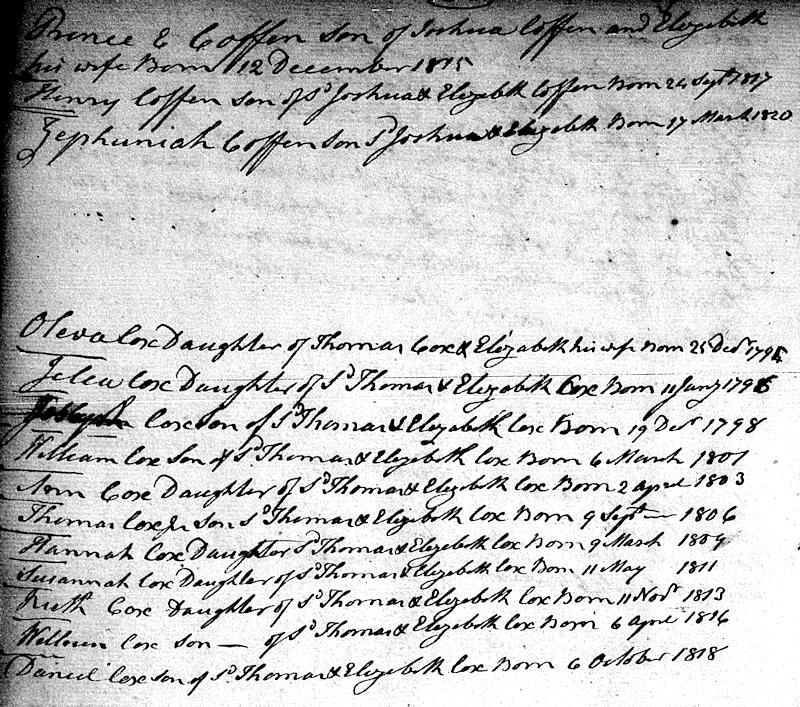 Prince E Coffen Son of Joshua Coffen and Elizebeth
his wife Born 12 December 1815
Henry Coffen Son of Sd Joshua & Elizebeth Coffen Born 24 Sept 1817
Zephuniah Coffen Son Sd Joshua & Elizebeth Born 17 March 1820
Oleva Cox Daughter of Thomas Cox & Elizabeth his wife Born 25 Decr
Cox Daughter of Sd Thomas & Elizebeth Cox Born 11 Jany
Cox Son of Sd Thomas & Elizebeth Cox Born 19 Decr 1798
William Cox Son of Sd Thomas & Elizebeth Cox Born 6 March 1801
Ann Cox Daughter of Sd Thomas & Elizebeth Cox Born 2 april 1803
Thomas Cox Jr Son Sd Thomas & Elizebeth Cox Born 9 Sept 1806
Hannah Cox Daughter Sd Thomas & Elizebeth Cox Born 9 March 1809
Susannah Cox Daughter of Sd Thomas & Elizebeth Cox Born 11 May 1811
Ruth Cox Daughter of Sd Thomas & Elizebeth Cox Born 11 Novr 1813
Cox Son — of Sd Thomas & Elizebeth Cox Born 6 april 1816
Daniel Cox Son of Sd Thomas & Elizebeth Cox Born 6 October 1818